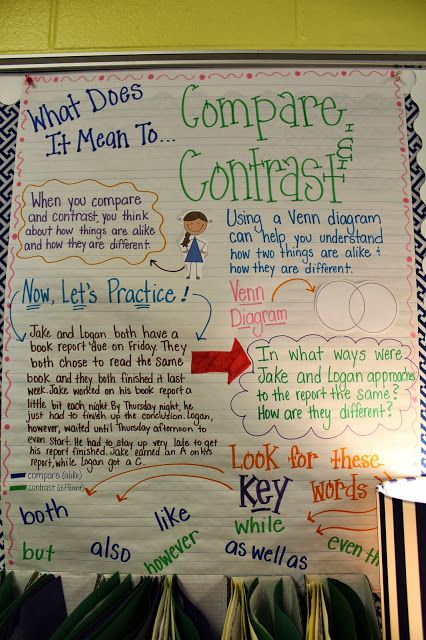 What Does
It Mean To...
Compare
&
Contrast
When you compare
and contrast, you think
about how things are alike
and how they are different.
Using a Venn diagram
can help you understand
how two things are alike +
how they are different.
Now, Let's Practice!
Venn
Diagram
Jake and Logan both have a
book report due on Friday. They
both chose to read the same
book and they both finished it last
week. Jake worked on his book report a
little bit each night. By Thursday night, he
just had to finish up the conclusion. Logan,
however, waited until Thursday afternoon to
even start. He had to stay up very late to get
his report finished. Jake earned an A on his
report, while Logan got a C.
In what ways were
Jake and Logan approaches
to the report the same?
How are they different?
compare (alike)
contrast (different)
Look for these
Key words
both
like
while
but
also
however
as well as
even th